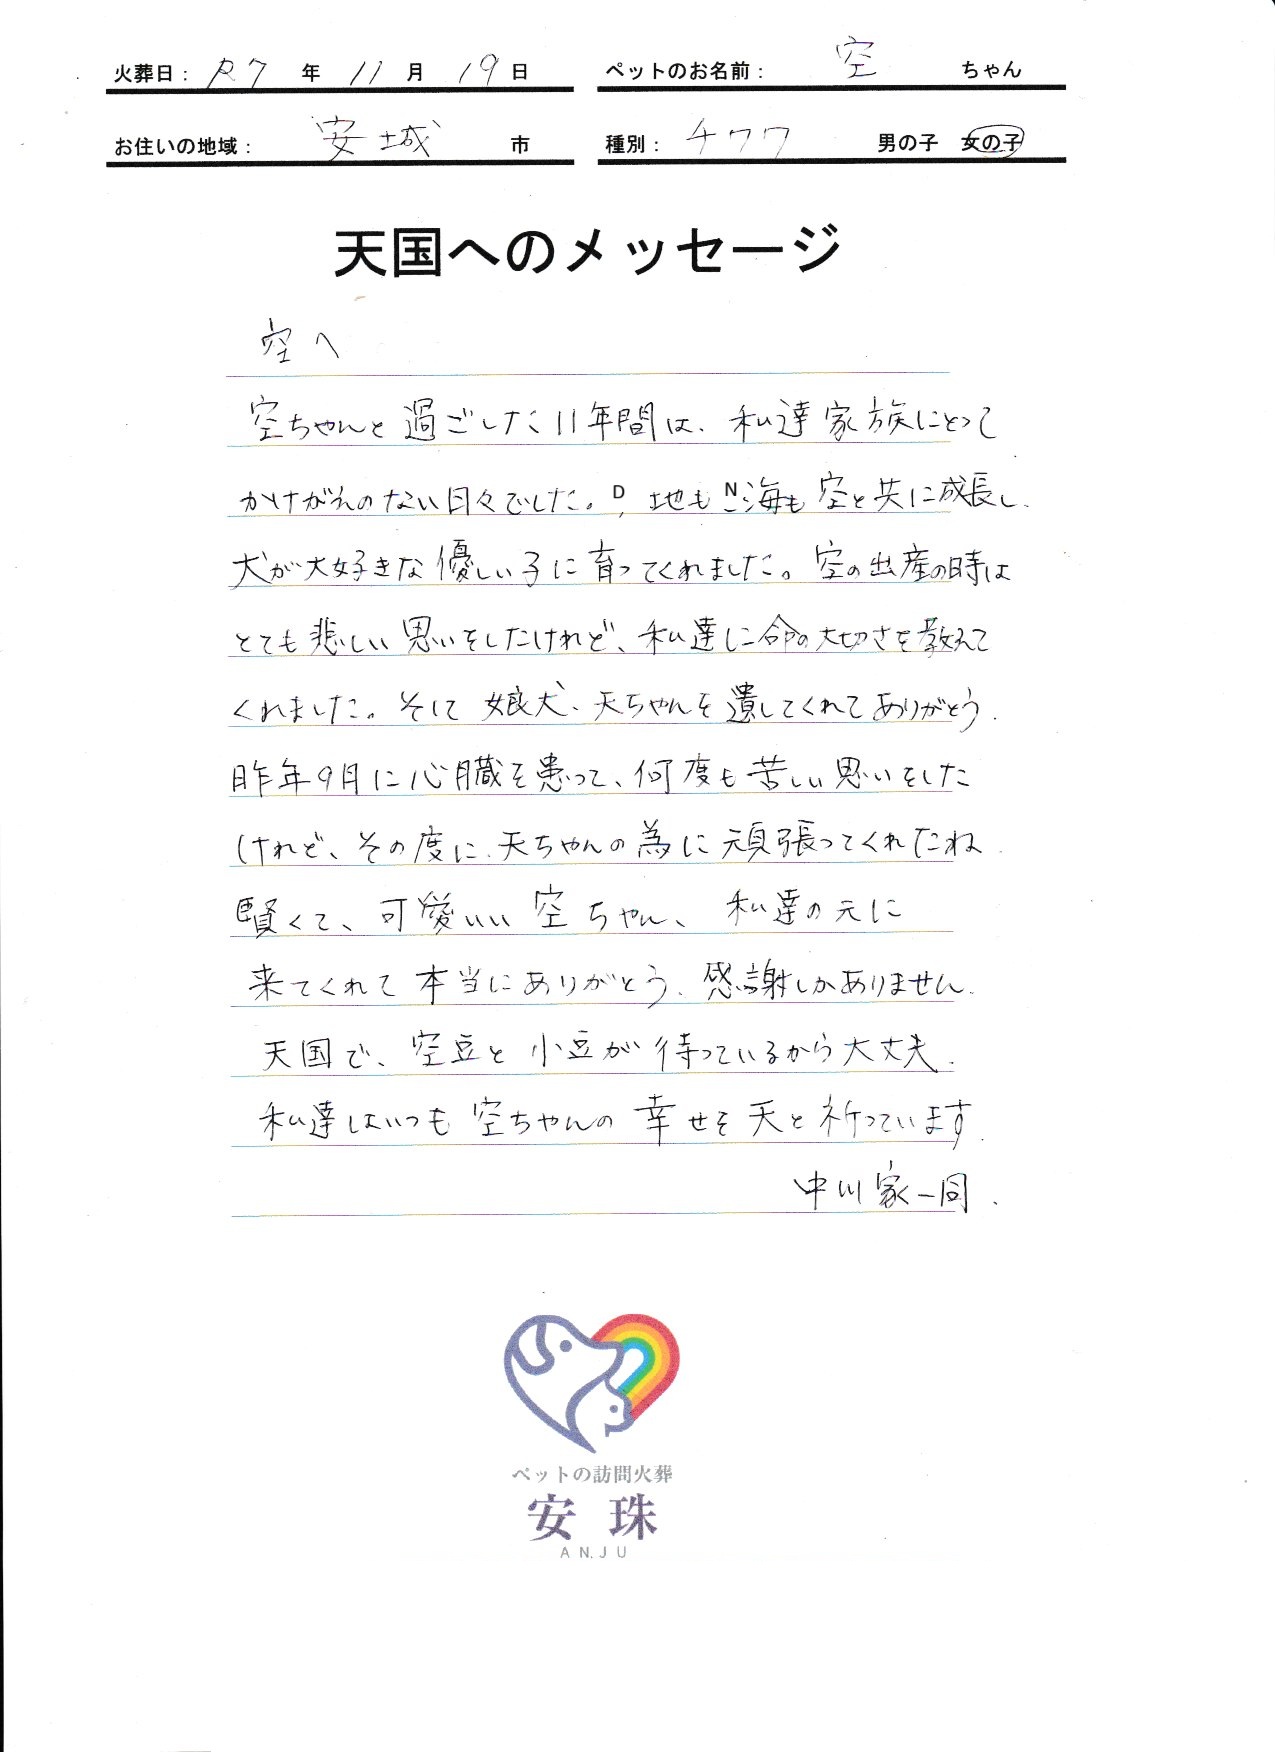 火葬日： R7 年 11 月 19 日 ペットのお名前： 空 ちゃん
お住いの地域： 安城 市 種別： チワワ 男の子 女の子
天国へのメッセージ
空へ
空ちゃんと過ごした11年間は、私達家族にとって
かけがえのない日々でした。D 地も N 海も空と共に成長し、
犬が大好きな優しい子に育ってくれました。空の出産の時は
とても悲しい思いをしたけれど、私達に命の大切さを教えて
くれました。そして娘犬、天ちゃんを遺してくれてありがとう。
昨年9月に心臓を患って、何度も苦しい思いをした
けれど、その度に、天ちゃんの為に頑張ってくれたね
賢くて、可愛いい空ちゃん、私達の元に
来てくれて本当にありがとう、感謝しかありません。
天国で、空豆と小豆が待っているから大丈夫。
私達はいつも空ちゃんの幸せを天と祈っています。
中川家一同.
ペットの訪問火葬
安珠
ANJU